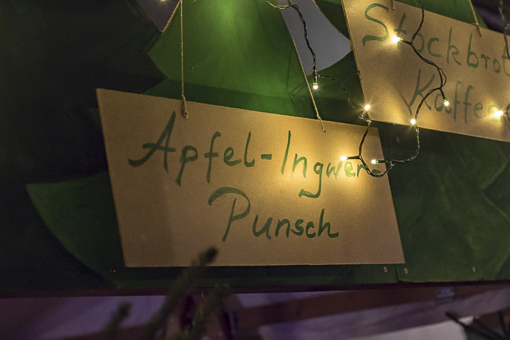 Apfel-Ingwer
Punsch
Stockbrot
Kaffee